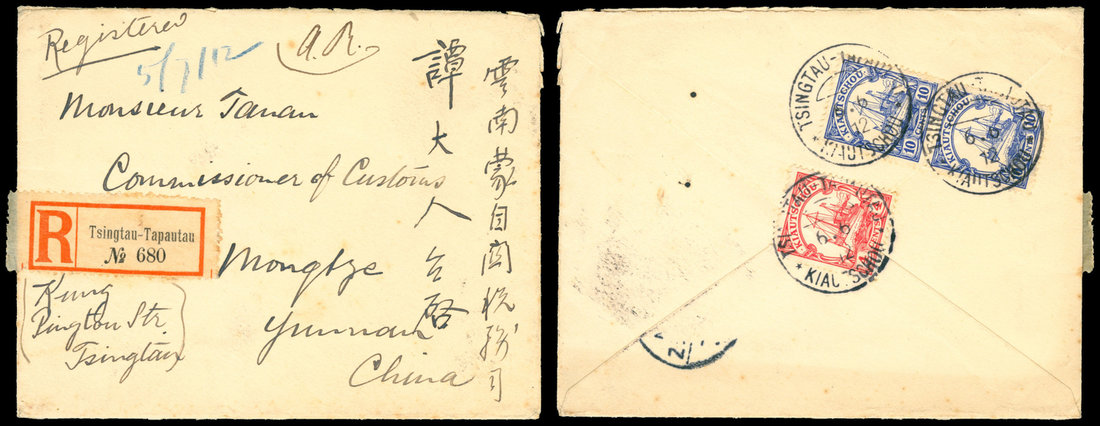 Registered
5/7/12
A.R.
Monsieur Tanan
Commissioner of Customs
Mongtze
Yunnan
China
R
Tsingtau-Tapautau
№ 680
Kung
Pington Str.
Tsingtau
雲南蒙自関税務司
譚大人台啓
TSINGTAU-TAPAUTAU
6.6
12
* KIAUTSCHOU
KIAUTSCHOU
10
10
TSINGTAU-TAPAUTAU
6.6
12
* KIAUTSCHOU
KIAUTSCHOU
10
KIAUTSCHOU
6.6
* KIAUTSCHOU